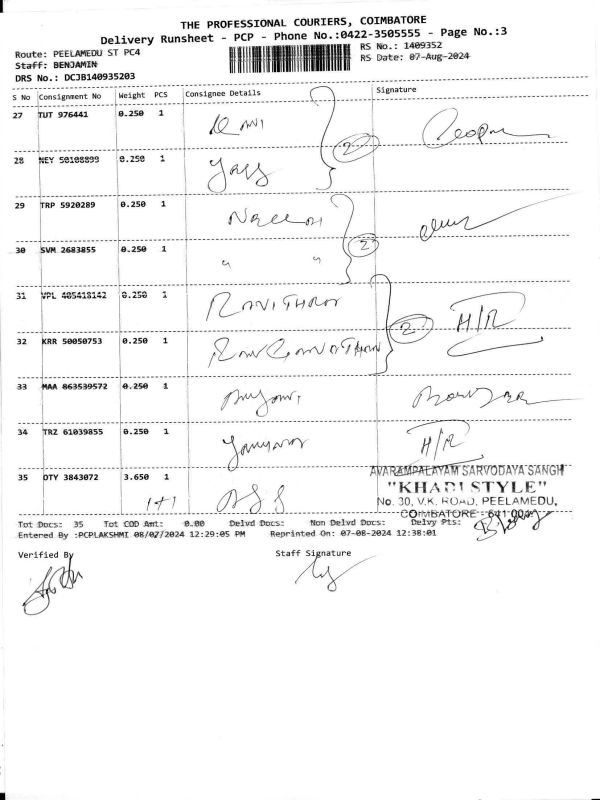 THE PROFESSIONAL COURIERS, COIMBATORE
Delivery Runsheet - PCP - Phone No.:0422-3505555 - Page No.:3
Route: PEELAMEDU ST PC4
RS No.: 1409352
Staff: BENJAMIN
RS Date: 07-Aug-2024
DRS No.: DCJB140935203
S No Consignment No Weight PCS Consignee Details Signature
27 TUT 976441 0.250 1 Ravi
2
28 NEY 50108899 0.250 1
29 TRP 5920289 0.250 1
2
30 SVM 2683855 0.250 1 " "
31 VPL 405418142 0.250 1 H/R
2
32 KRR 50050753 0.250 1
33 MAA 863539572 0.250 1
34 TRZ 61039855 0.250 1 H/R
35 OTY 3843072 3.650 1
1+1
AVARAMPALAYAM SARVODAYA SANGH
"KHADI STYLE"
No. 30, V.K. ROAD, PEELAMEDU,
COIMBATORE - 641 004
Tot Docs: 35 Tot COD Amt: 0.00 Delvd Docs: Non Delvd Docs: Delvy Pts:
Entered By :PCPLAKSHMI 08/07/2024 12:29:05 PM Reprinted On: 07-08-2024 12:38:01
Verified By Staff Signature